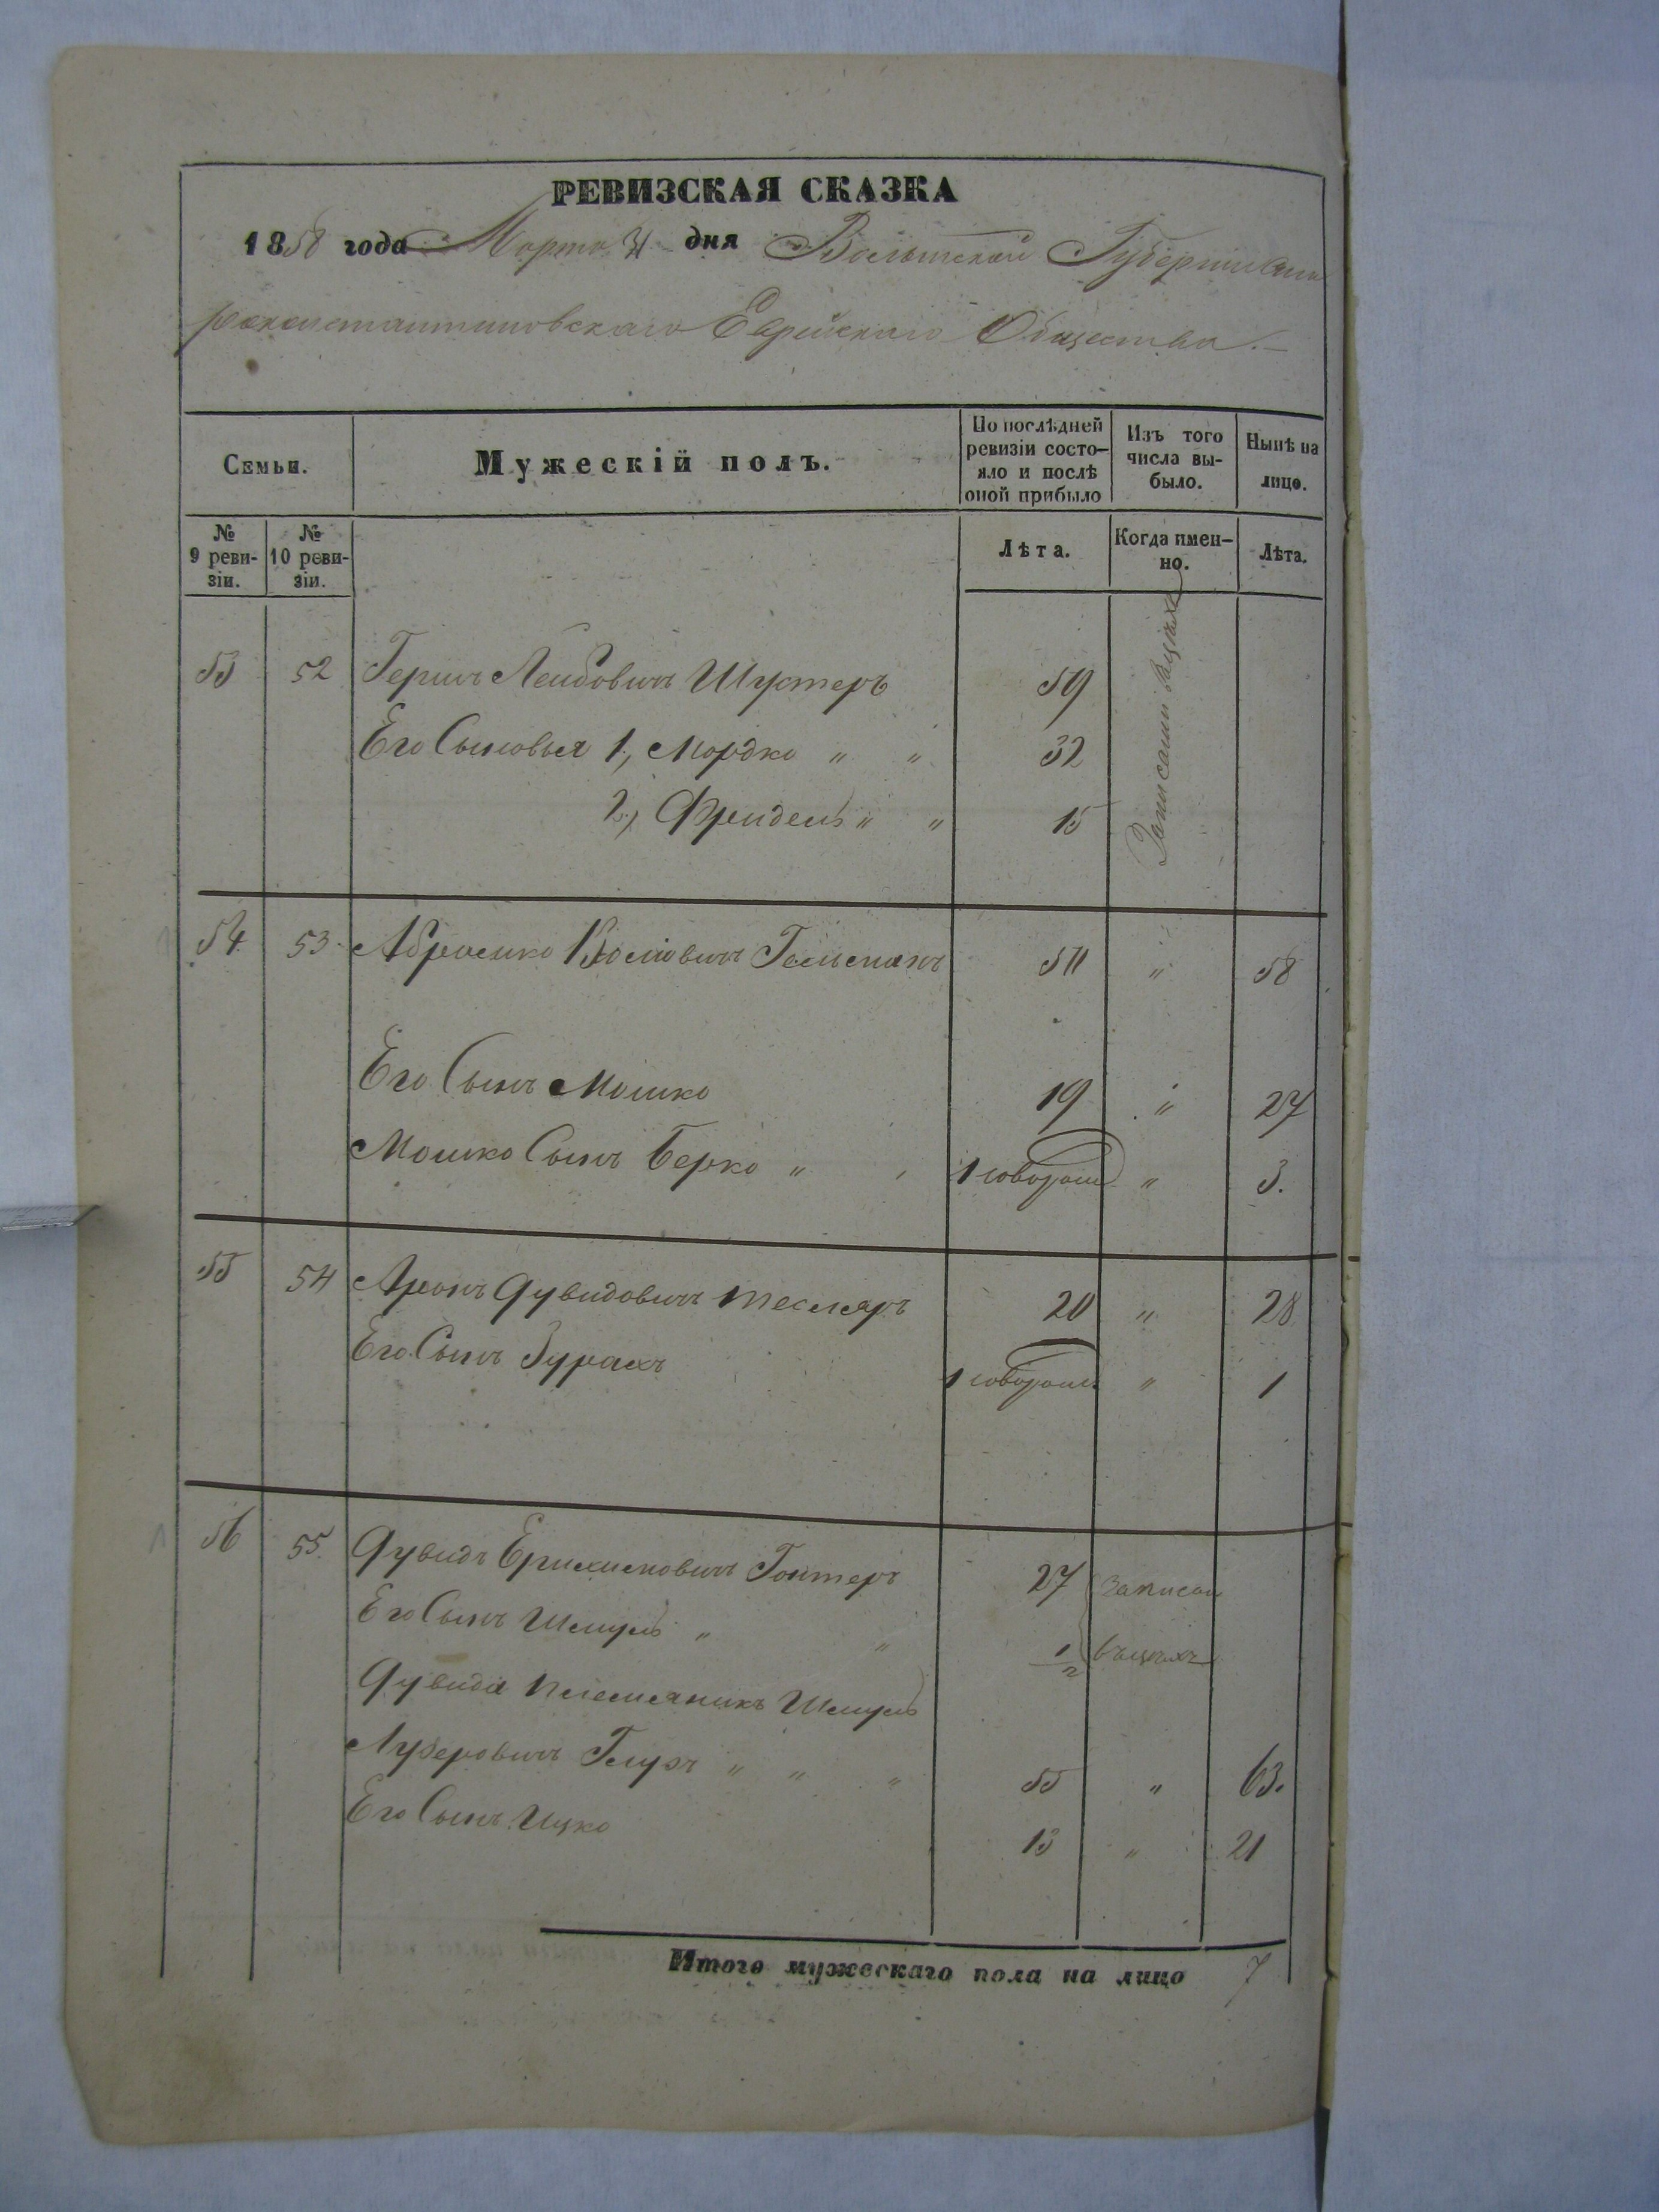 РЕВИЗСКАЯ СКАЗКА
1858 года Марта 31 дня Волынской Губерніи Ста
роконстантиновскаго Еврейскаго Общества.
Семьи.
Мужескій полъ.
По послѣдней ревизіи состо-
яло и послѣ
оной прибыло
Изъ того
числа вы-
было.
Нынѣ на
лицо.
№
9 реви-
зіи.
№
10 реви-
зіи.
Лѣта.
Когда имен-
но.
Лѣта.
53 52 Лейбовичъ Шустеръ 59
Его Сыновья 1, Мордко " " 32
2, Фридель " " 15
Записаны
54 53 Абрамко Гельманъ 50 " 58
Его Сынъ Мошко 19 " 27
Мошко Сынъ Берко " 1 " 3.
55 54 Аронъ Дувидовичъ Тесляръ 20 " 28
Его Сынъ Зурахъ 1 " 1
56 55. Дувидъ Гонтеръ 27 записан
Его Сынъ Шмуль " " 1/2 въ цехъ
Дувида племянникъ Шмуль
Лузеровичъ " " " 55 " 63.
Его Сынъ Ицко 13 " 21
Итого мужескаго пола на лицо 7